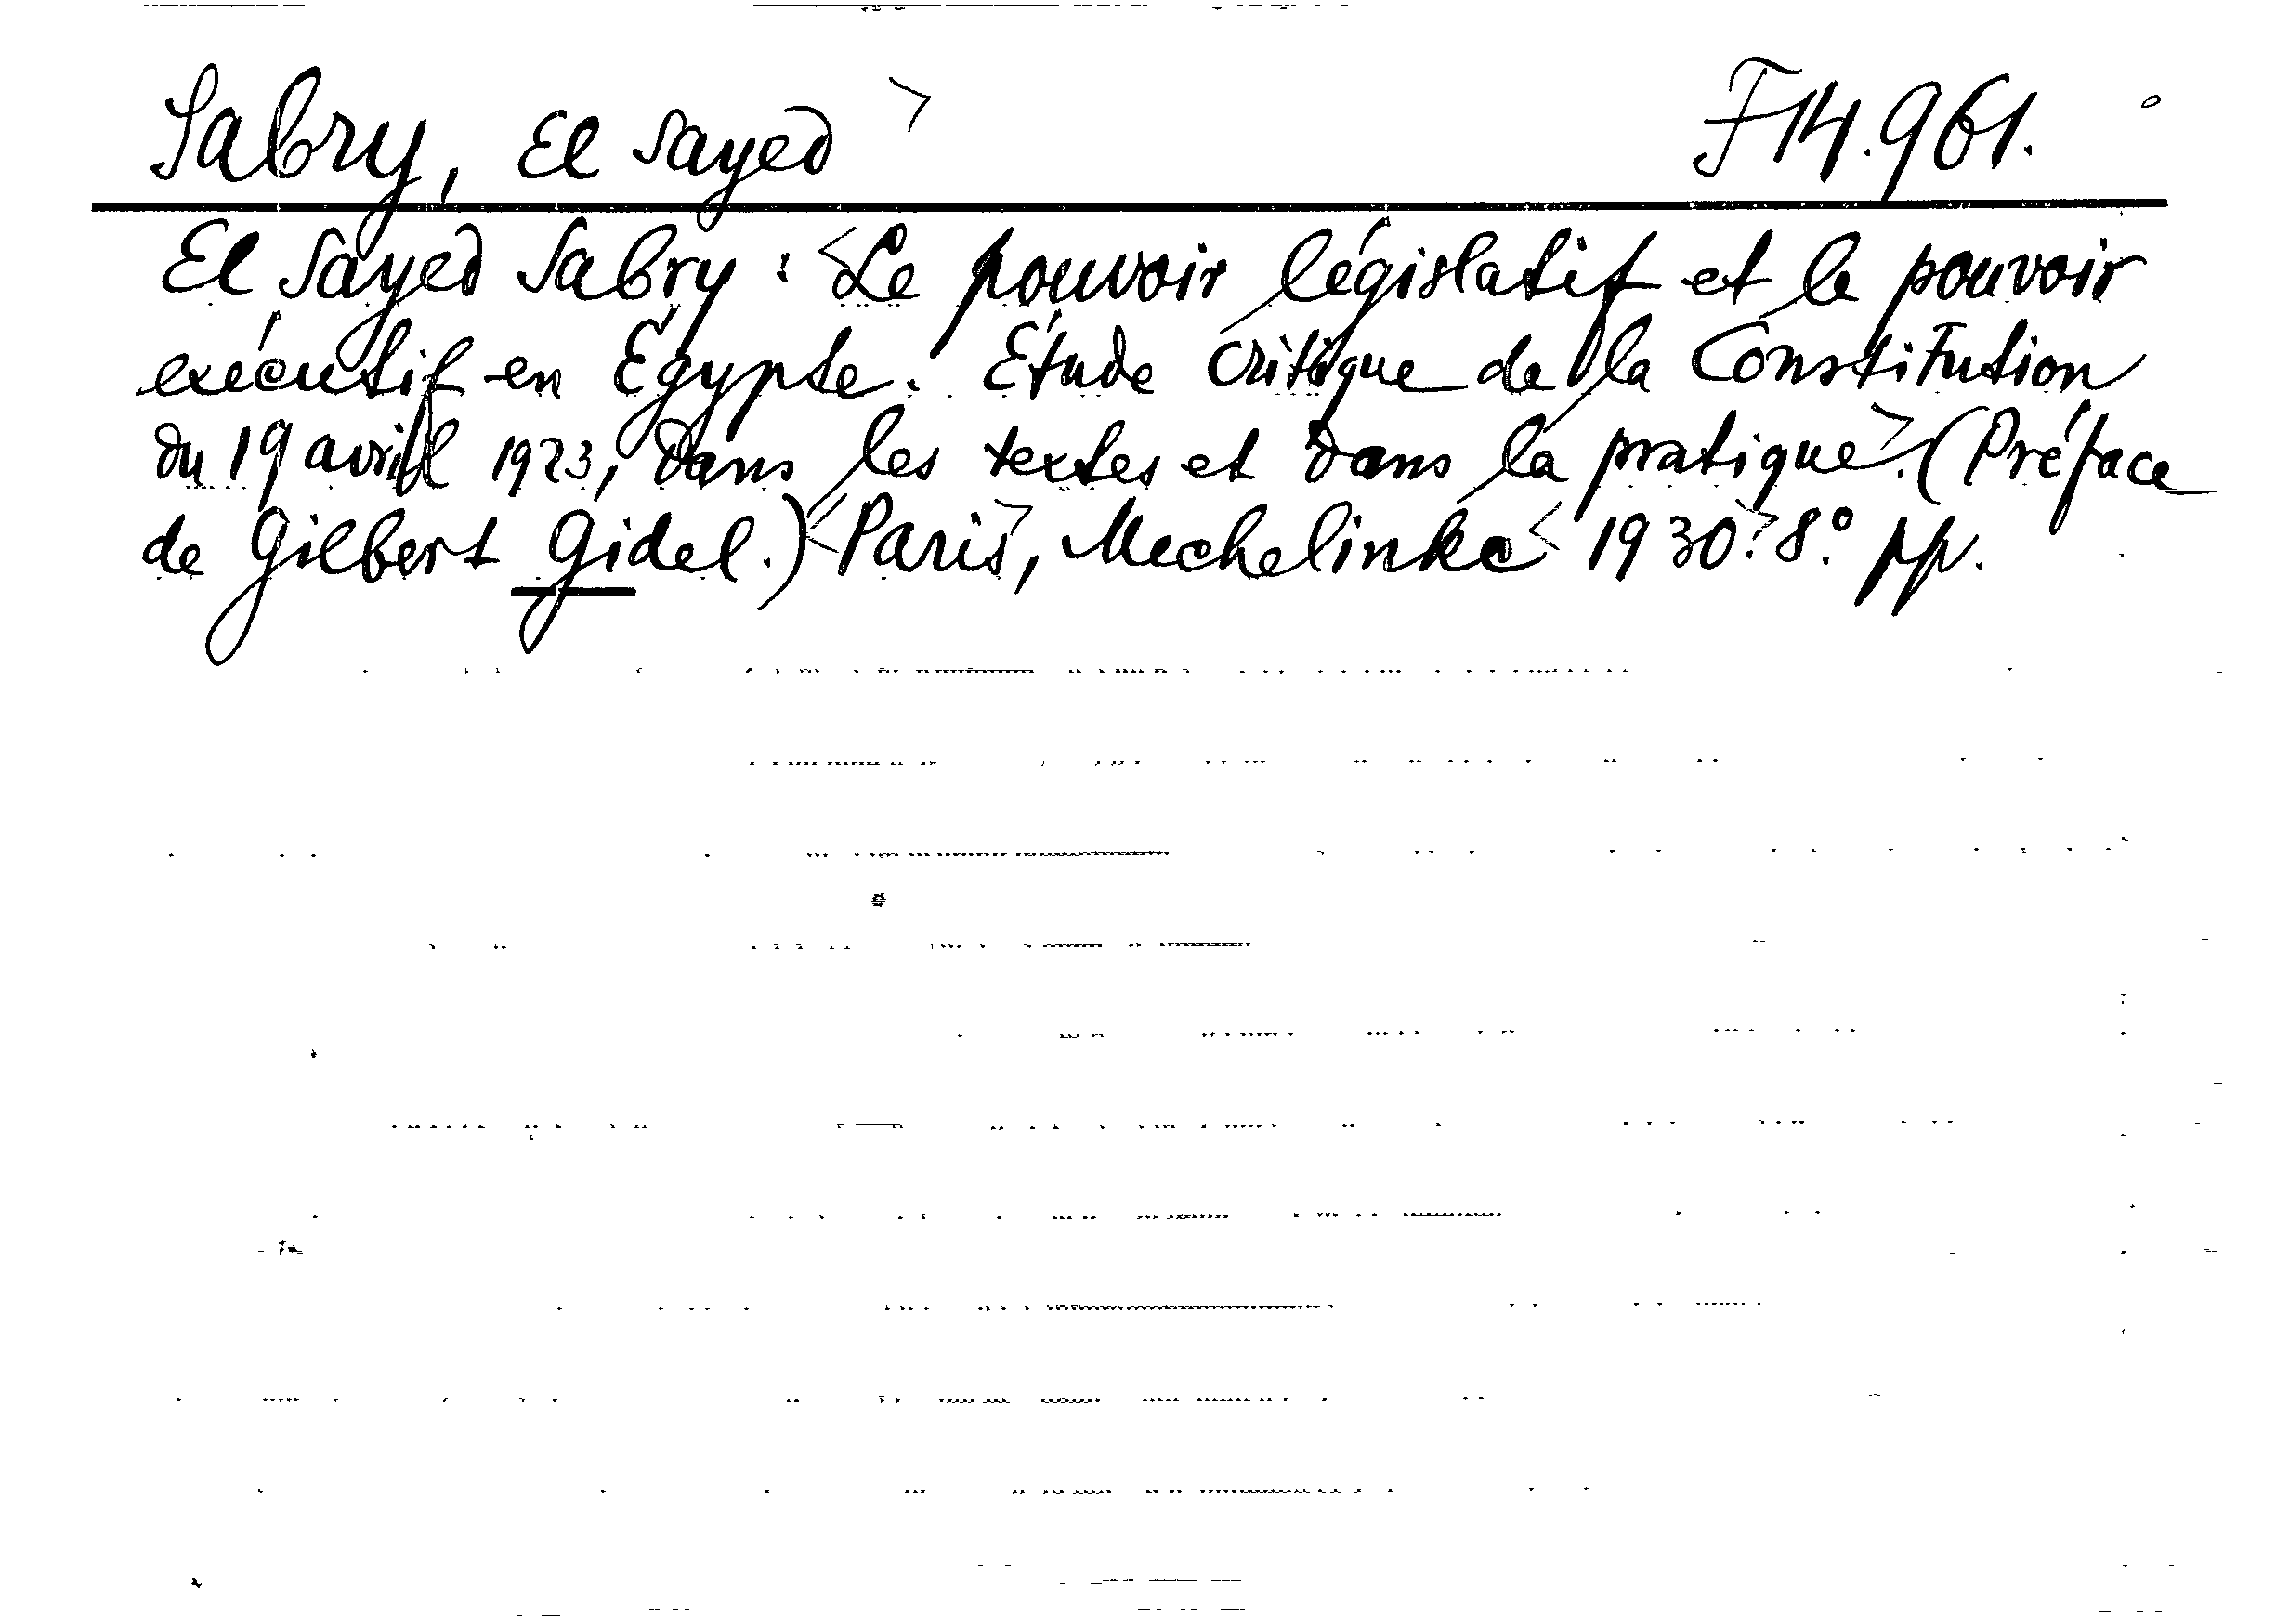 Sabry, El Sayed > F14.961.
El Sayed Sabry : <Le pouvoir législatif et le pouvoir
exécutif en Égypte. Étude critique de la Constitution
du 19 avril 1923, dans les textes et dans la pratique>. (Préface
de Gilbert Gidel.) <Paris>, Mechelinke <1930>. 8.° pp.